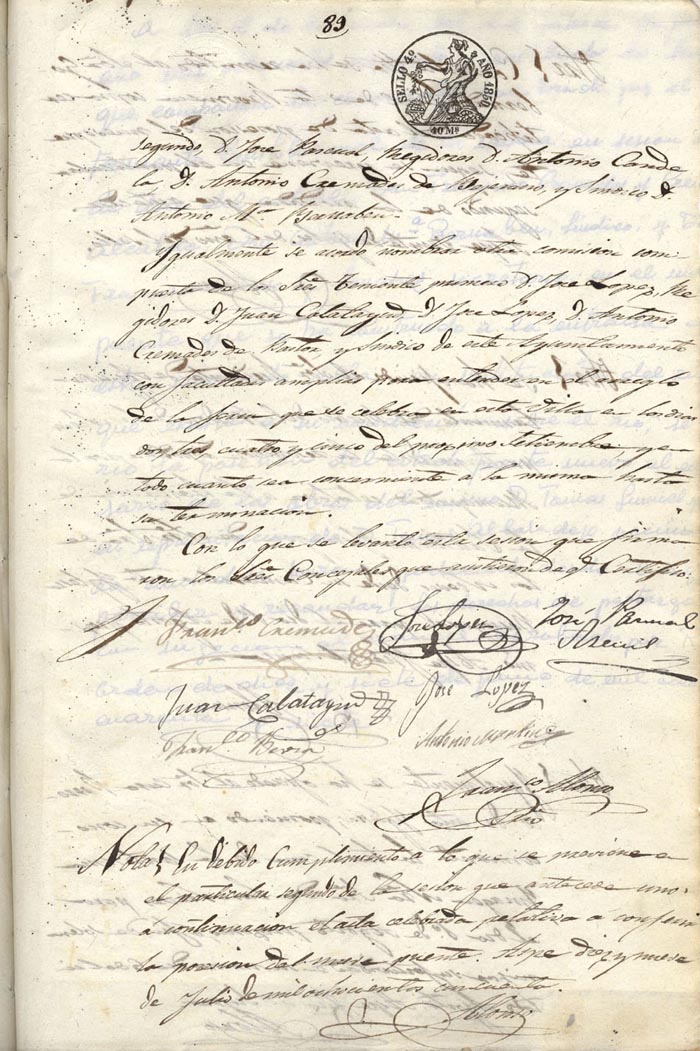 89
SELLO 4º AÑO 1850.
40 Ms
segundo, D. Jose Pascual, Regidores D. Antonio Cande
la, D. Antonio Cremades de y Sindico D.
Antonio Mª
Ygualmente se acordó nombrar otra comision com
puesta de los Sres Teniente primero D. Jose Lopez, Re
gidores D. Juan Calatayud, D. Jose Lopez, D. Antonio
Cremades de Pastor y Sindico de este Ayuntamiento
con facultades amplias para entender en el arreglo
de la feria que se celebra en esta Villa en los dias
dos, tres, cuatro, y cinco del procsimo Setiembre, y en
todo cuanto sea concerniente á la misma hasta
su terminacion.
Con lo que se levantó este sesion que firma
ron los Sres Concejales que asistieron de q. Certifico.
Franco Cremades Jose Lopez Jose Pascual
Juan Calatayud Jose Lopez
Franco Antonio
Franco Alonso
Srio
Nota En debido cumplimiento a lo que se previene en
el particular segundo de la sesion que antecede uno
á continuacion el acta celebrada relativa a conferir
la posesion del nuevo puente. Aspe diez y nueve
de Julio de mil ochocientos cincuenta.
Alonso